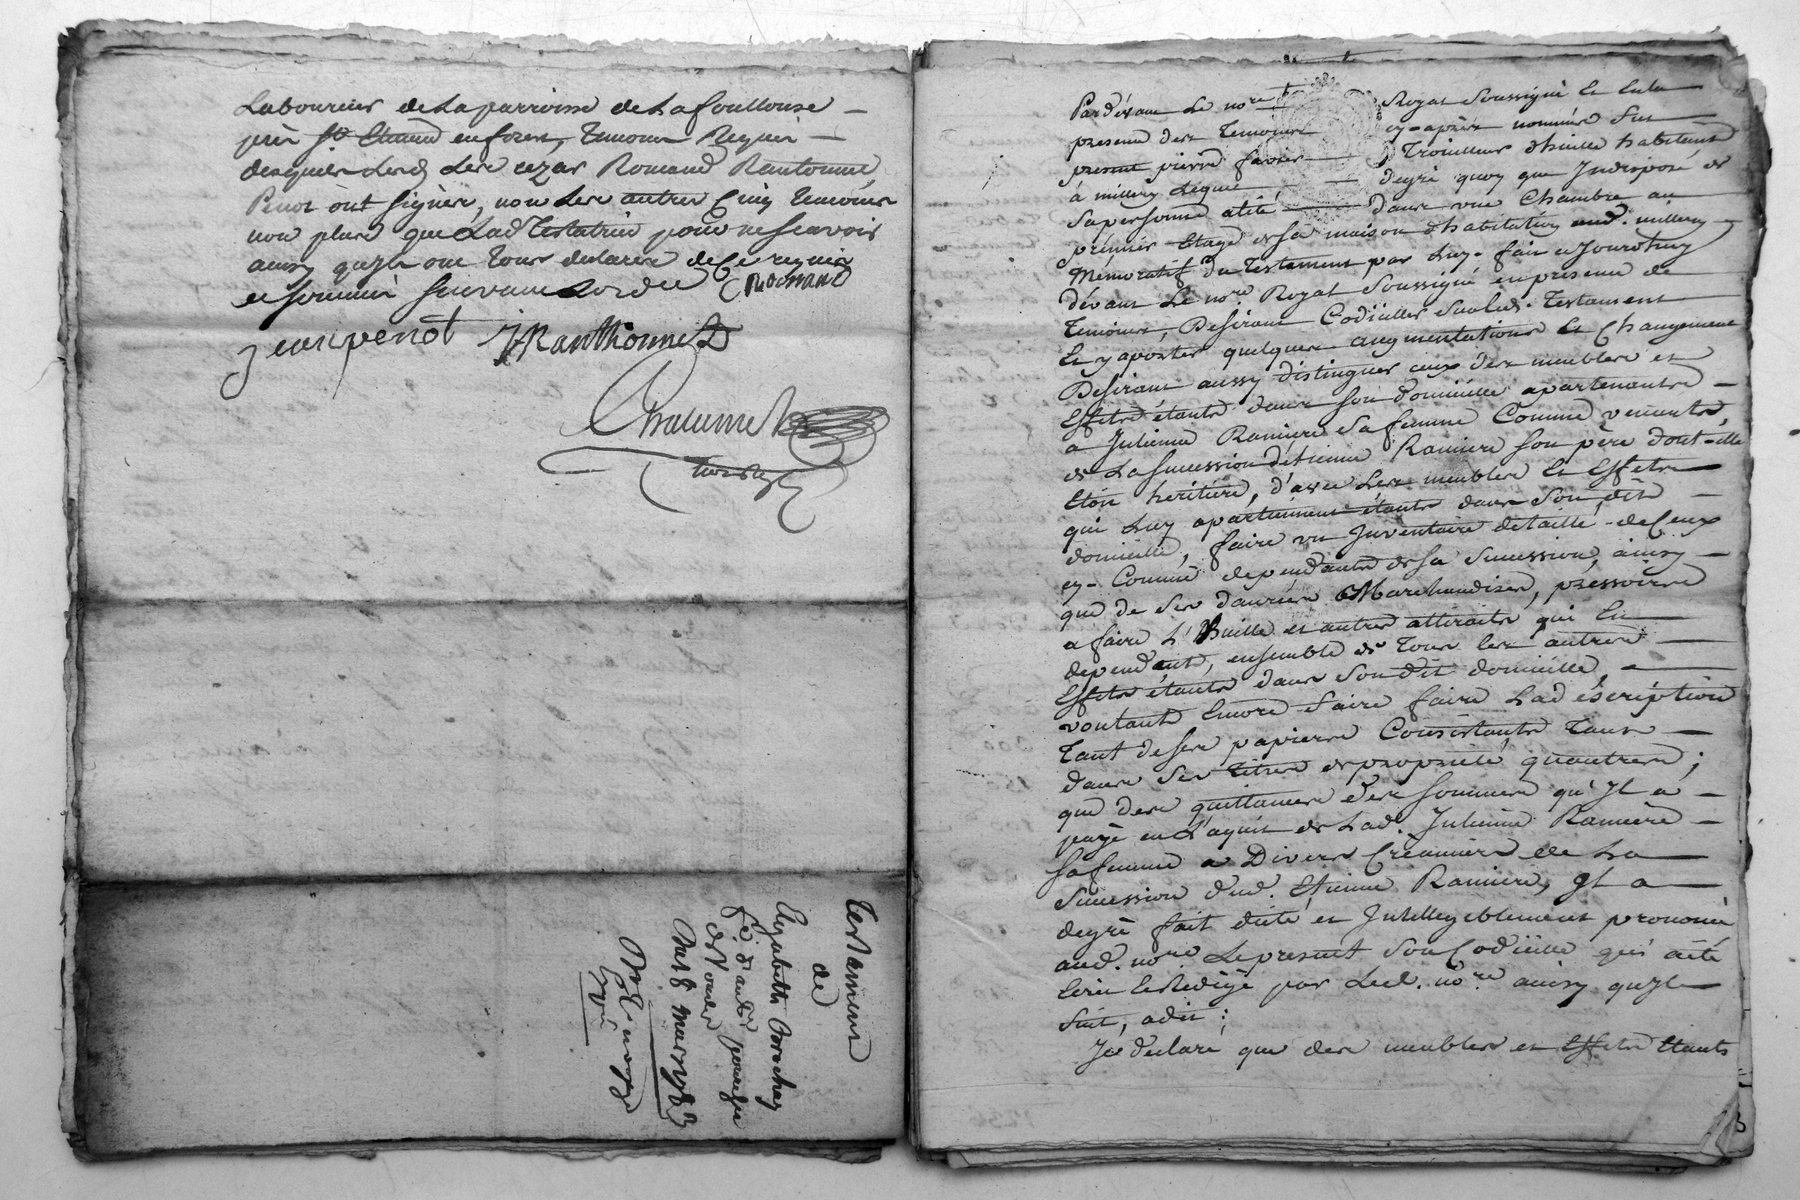 Laboureur de La parroisse de La foullouse
près St Etienne en forest, Temoins Requis
desquels Lesd Srs cezar Romand Ranthonnet,
Penot ont signés, non Les autres Cinq Temoins
non plus que Lad Testatrice pour ne scavoir
ainsy qu'jls ont Tous declarés de Ce requis
et sommés suivant Lordce C Romand
jean penot JRanthonnet
Chalumet
nore Royal
Testament
de
Elyzabeth
Par devant Le nore Royal Soussigné Et En La
presence des Temoins cy-après nommés fut
present pierre favier, Trouilleur d'huille habitant
à millery Lequel degré quoy que Jndisposé de
Sa personne alité dans une Chambre au
premier Etage de sa maison d'habitation aud. millery
Mémoratif du Testament par Luy fait ce jourd'huy
dévant Le nore. Royal Soussigné en presence de
Temoins, Desirant Codiciller Sur led. Testament
Et y aposter quelques augmentations Et Changement
Desirant aussy distinguer ceux des meubles et
Effets étants dans son domicille apartenants
a Julienne Ranniere Sa femme Comme venants
de La succession d'etienne Ranniere Son père dont elle
Etoit heritiere, d'avec Les meubles Et Effets
qui Luy apartiennent étants dans Son dit
domicille, faire un Jnventaire détaillé de Ceux
cy Comme dependants de sa Succession, ainsy
que de Ses danrées Marchandises, pressoirs
a faire L'huille et autres attiraits qui En
dependent, ensemble de Tous les autres
Effets étants dans Son dit domicille,
voulant Encore faire faire Lad déscription
Tant de ses papiers Consistants Tant
dans Ses titres de propriété qu'autres;
que des quittances des sommes qu'Jl a
payé en L'aquit de Lad. Julienne Ranniere
Sa femme a Divers Créanciers de La
Succession dud. Etienne Ranniere, Jl a
degré fait dicté et Jntelligiblement prononcé
aud. nore. Le present Son Codicille qui a été
Ecrit Et Rédigé par Led. nore ainsy qu'jl
Suit, a dit;
Je déclare que des meubles et Effets Etants